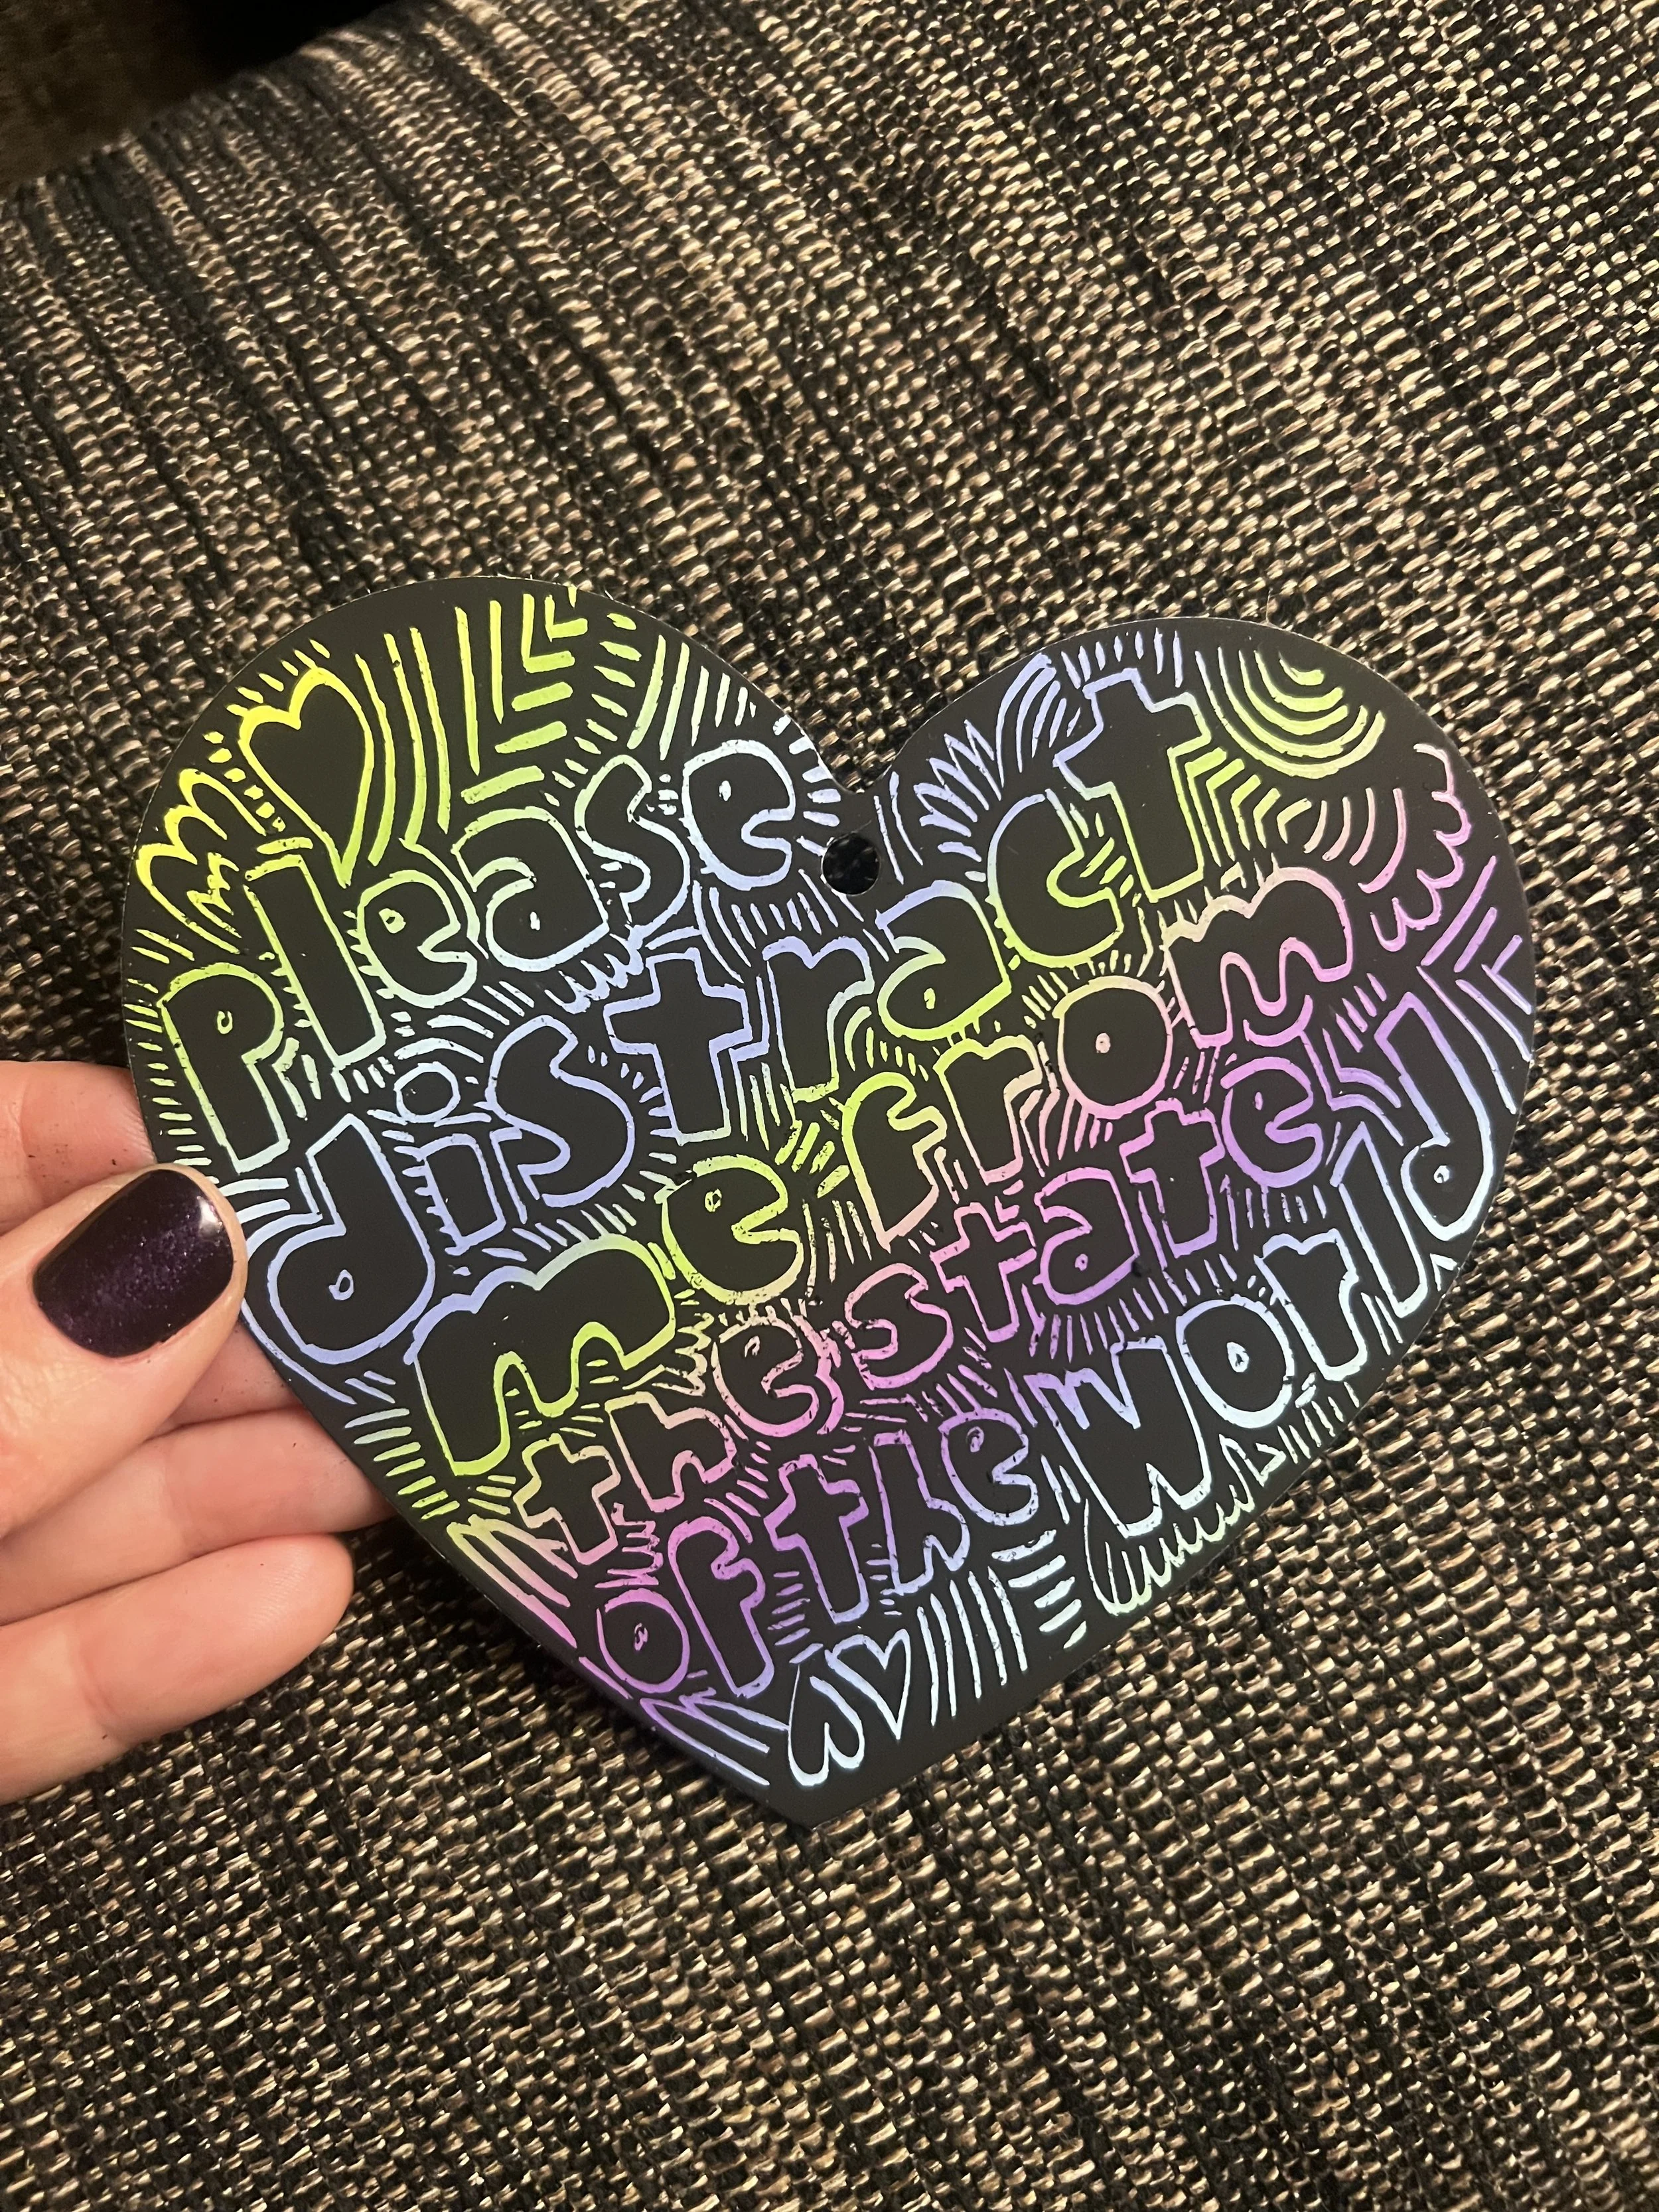 please
distract
me from
the state
of the world